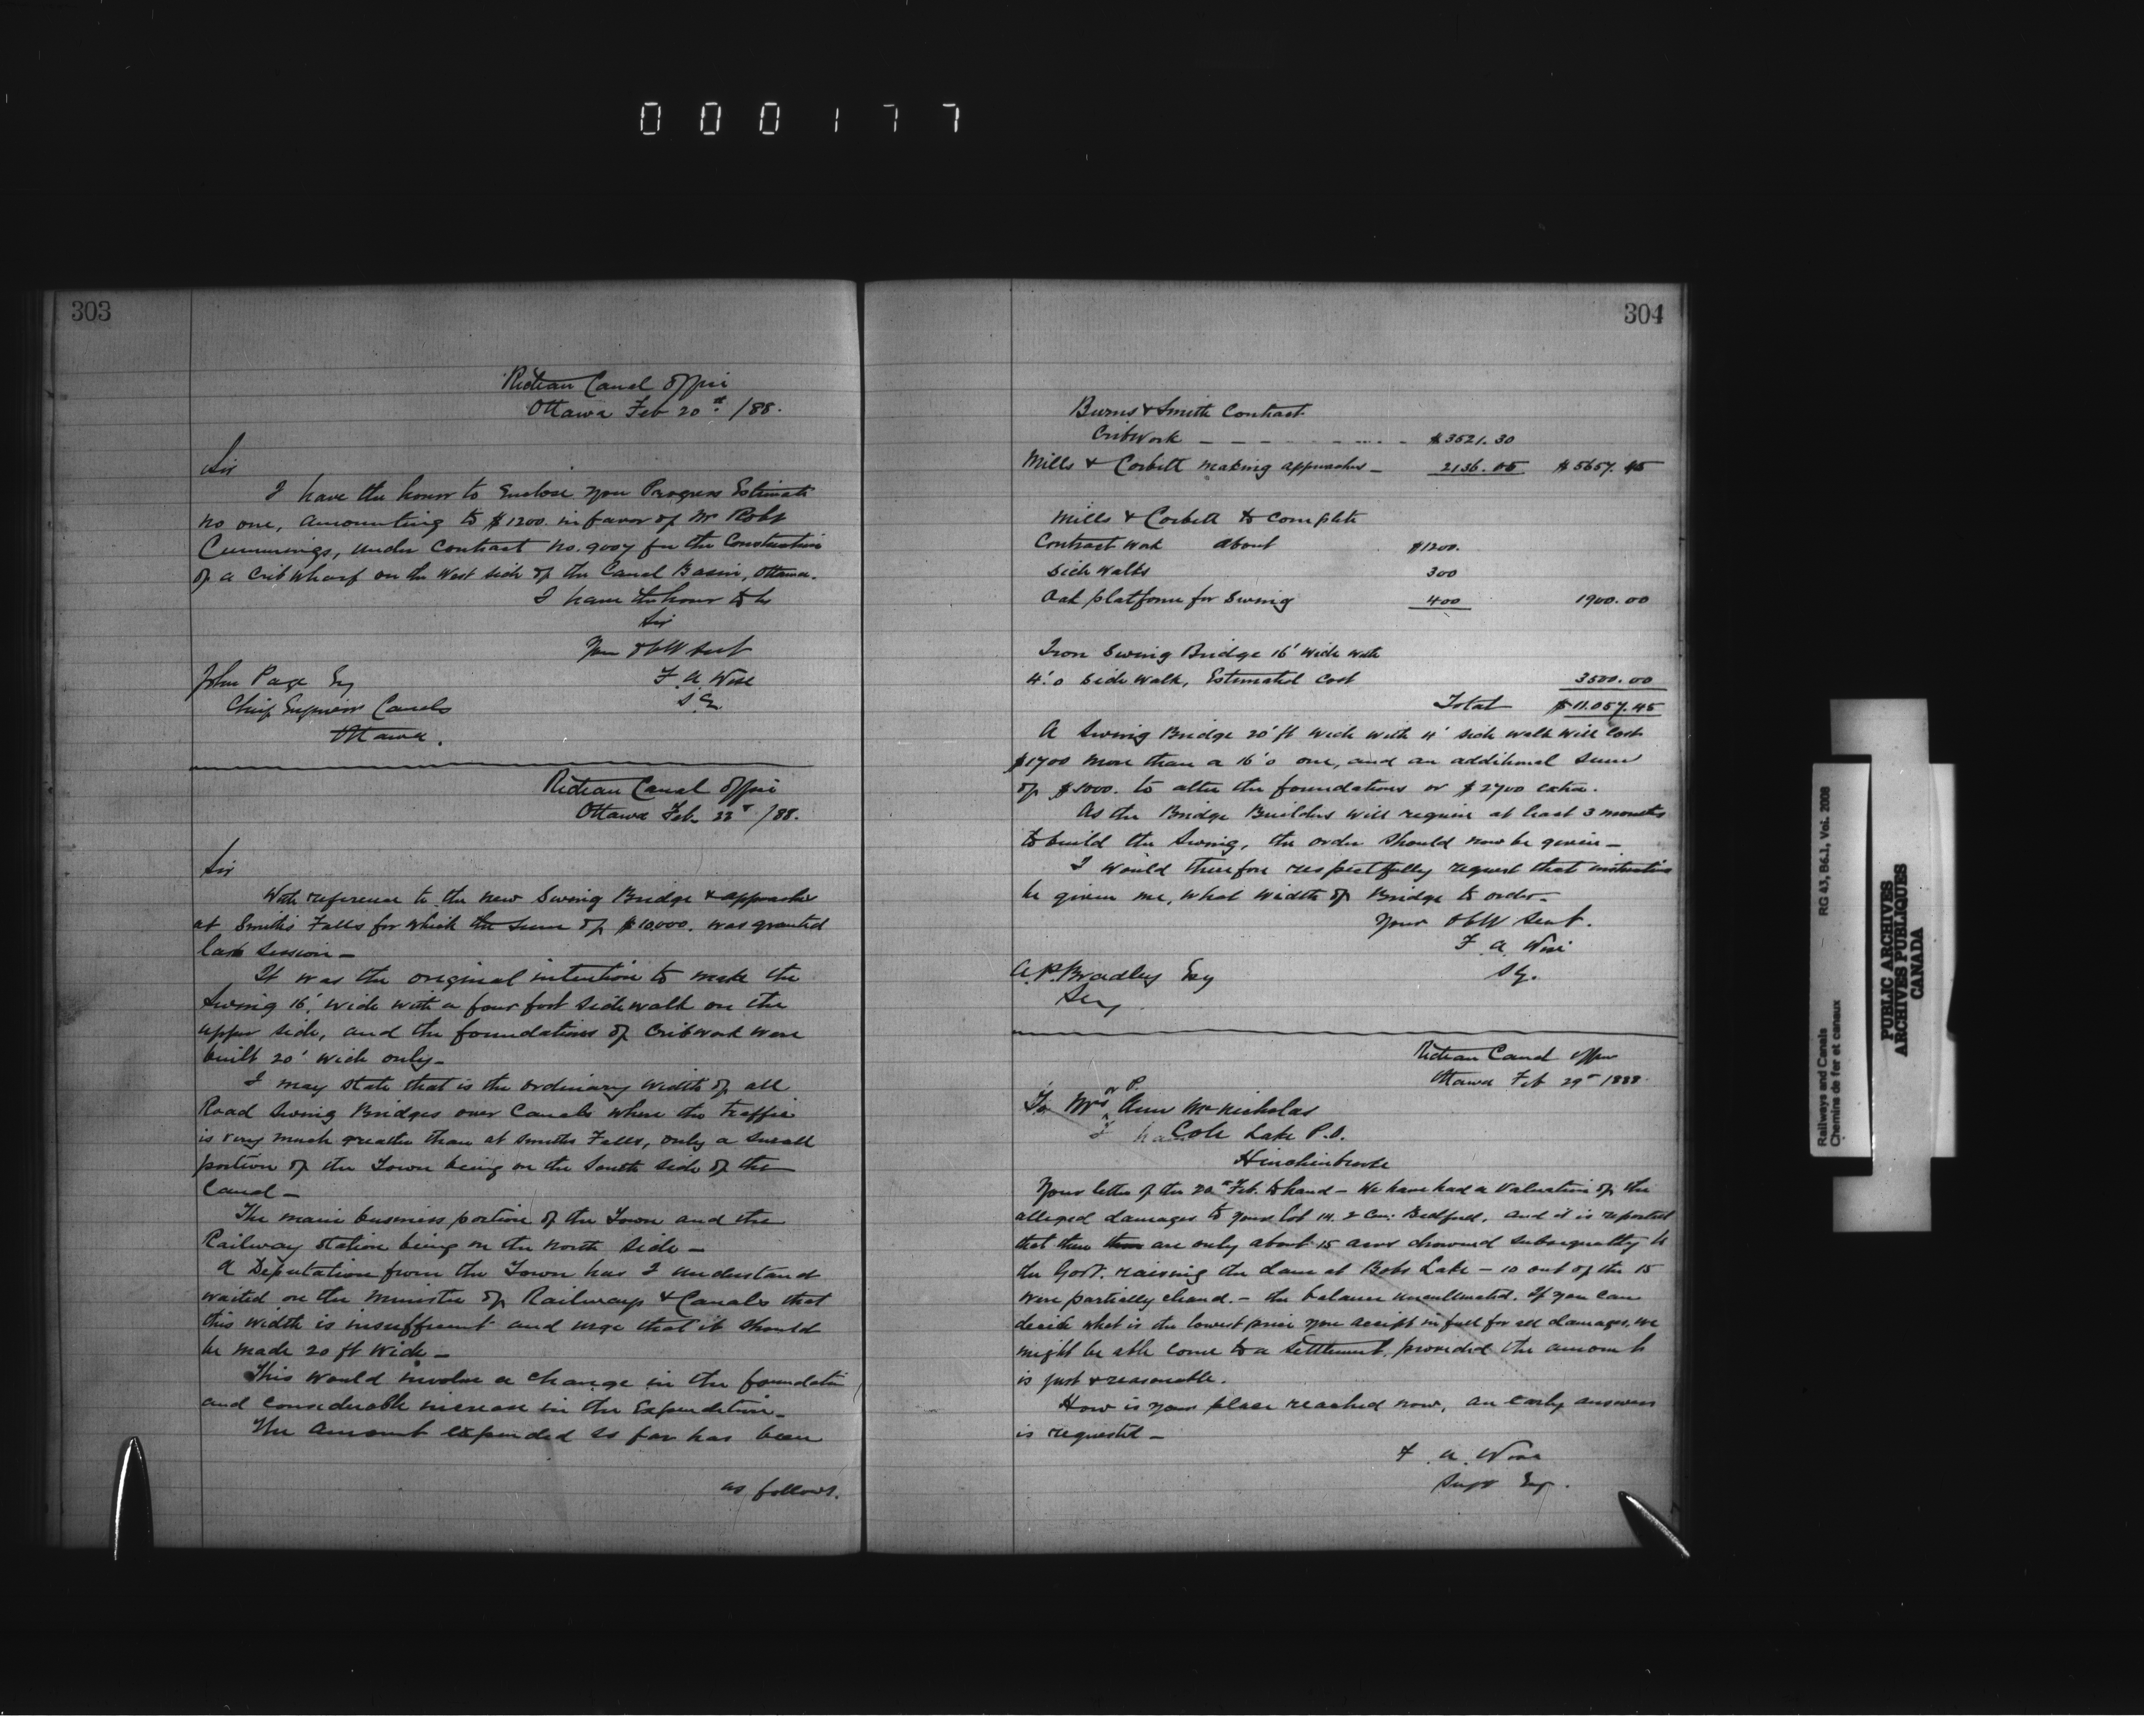 000177
303
Rideau Canal Office
Ottawa Feb 20th /88.
Sir
I have the honor to Enclose you Progress Estimate
no one, amounting to $1200. in favor of Mr Robt
Cummings, under Contract No. 9007 for the Construction
of a Crib Wharf on the West side of the Canal Basin, Ottawa.
I have the honor to be
Sir
Your Obt Servt
F. A. Wise
S. E.
John Page Esq
Chief Engineer Canals
Ottawa.
Rideau Canal Office
Ottawa Feb. /88.
Sir
With reference to the new Swing Bridge & approaches
at Smiths Falls for which the sum of $10000. was granted
last session —
It was the original intention to make the
Swing 16', wide with a four foot side walk on the
upper side, and the foundations of Cribwork were
built 20' wide only —
I may state that is the ordinary width of all
Road Swing Bridges over Canals where the traffic
is very much greater than at Smiths Falls, only a small
portion of the Town being on the South side of the
Canal —
The main business portion of the Town and the
Railway station being on the North side —
A Deputation from the Town has I understand
waited on the Minister of Railways & Canals that
this width is insufficient and urge that it should
be made 20 ft wide —
This would involve a change in the foundation
and considerable increase in the Expenditure —
The Amount expended so far has been
as follows.
304
Burns & Smith Contract
Cribwork — — — — — — $3521.30
Mills & Corbett making approaches — 2136.05 $5657.45
Mills & Corbett to complete
Contract work about $1200.
Side walks 300
Oak platform for Swing 400 1900.00
Iron Swing Bridge 16' wide with
4'.0 side walk, Estimated Cost 3500.00
Total $11.057.45
A Swing Bridge 20' ft wide with 4' side walk will cost
$1700 more than a 16'0 one, and an additional sum
of $1000. to alter the foundations or $2700 extra.
As the Bridge Builders will require at least 3 months
to build the Swing, the order should now be given —
I would therefore respectfully request that instructions
be given me, what width of Bridge to order —
Your Obt Servt.
F. A. Wise
S E.
A. P. Bradley Esq
Secy
Rideau Canal Office
Ottawa Feb 29th 1888.
or P.
To Mrs Ann McNicholas
Cole Lake P.O.
Hinchinbrooke
Your letter of the Feb. to hand — We have had a Valuation of the
alleged damages to your lot 14. 2 Con: Bedford, and it is reported
that there are only about 15 acres drowned subsequently to
the Govt. raising the dam at Bobs Lake — 10 out of the 15
were partially cleared. — the balance uncultivated. If you can
decide what is the lowest price you accept in full for all damages, we
might be able come to a settlement, provided the amount
is just & reasonable.
How is your place reached now, an early answer
is requested —
F. A. Wise
Supt Eng.
Railways and Canals
Chemins de fer et canaux
RG 43, B6.1, Vol. 2008
PUBLIC ARCHIVES
ARCHIVES PUBLIQUES
CANADA